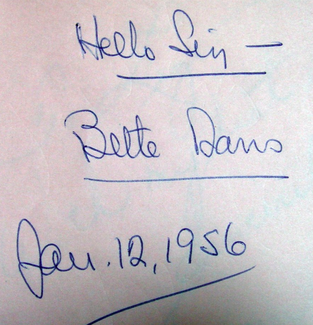 Hello Liz –
Bette Davis
Jan. 12, 1956